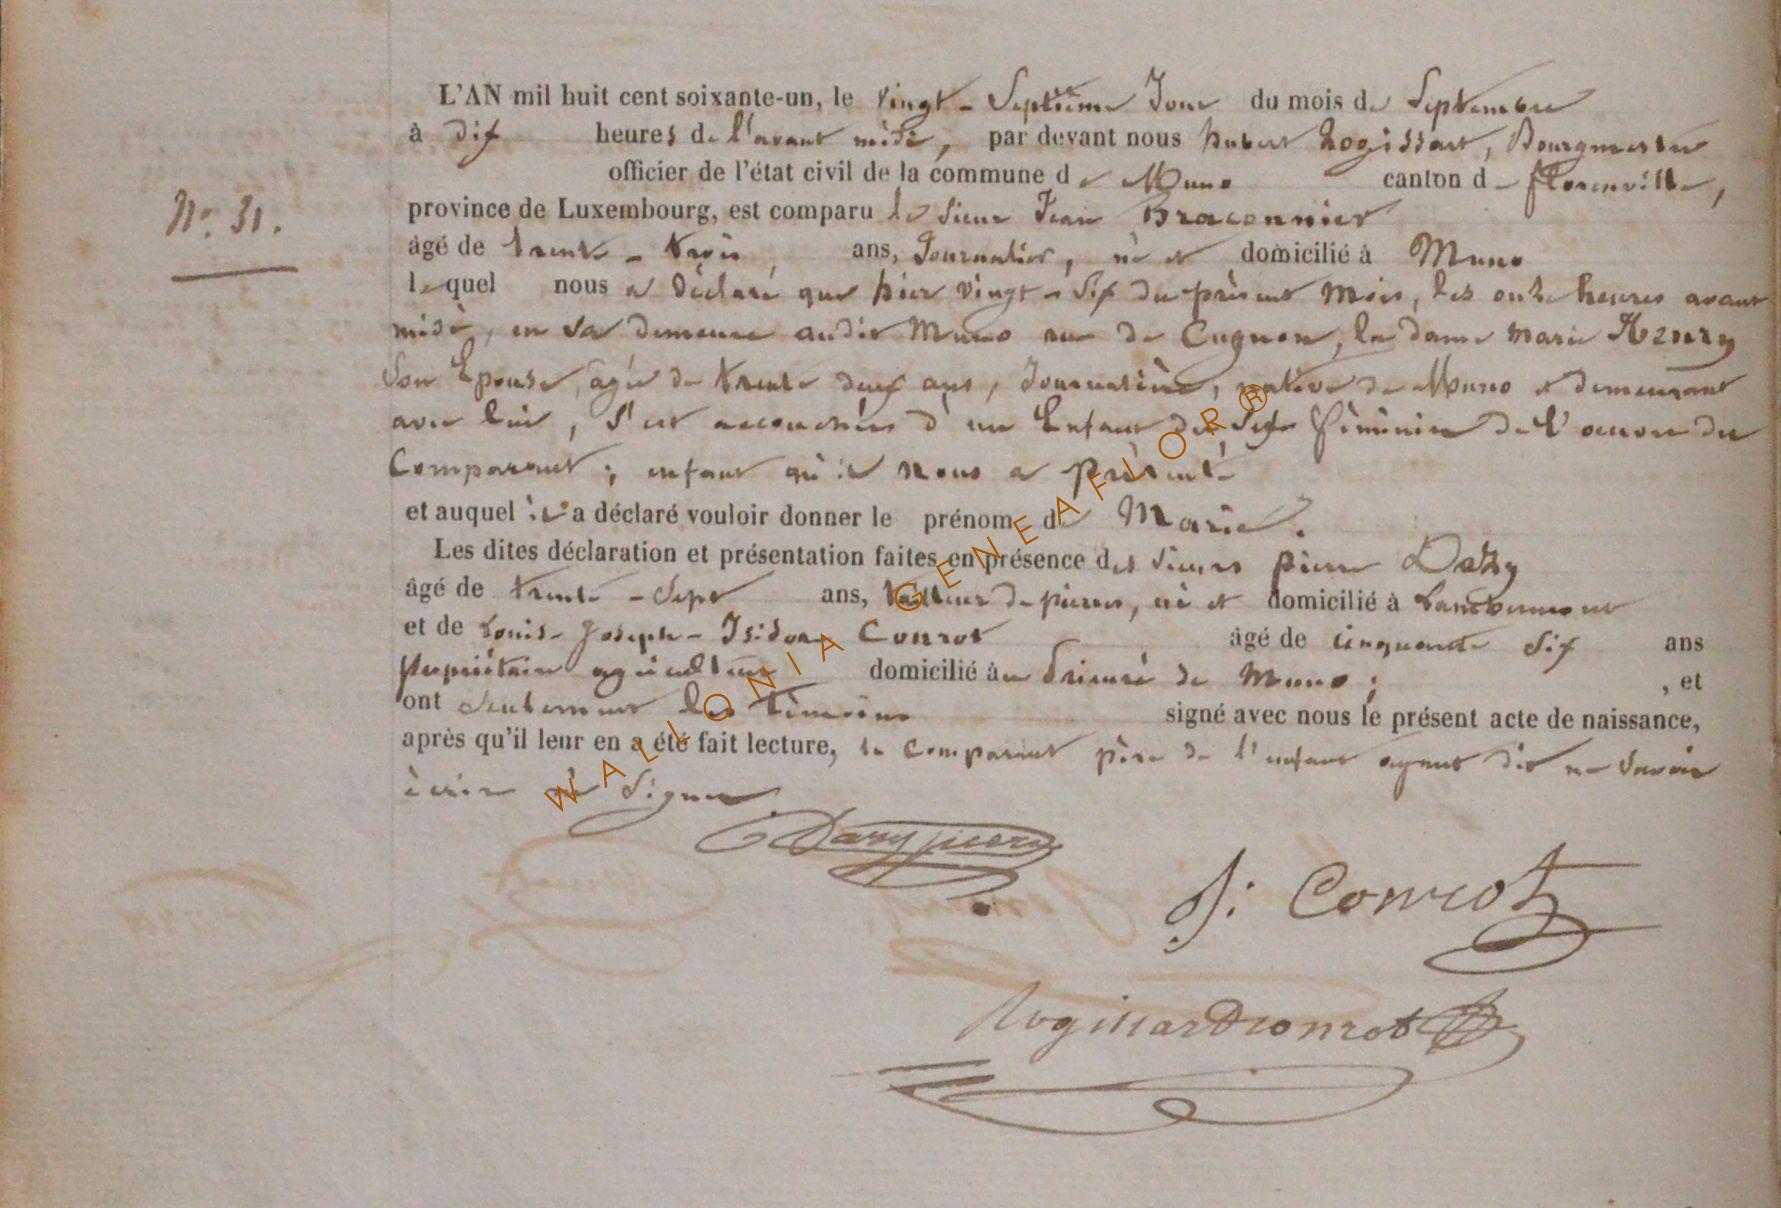 L'AN mil huit cent soixante-un, le vingt-Septième Jour du mois de Septembre
à dix heures de l'avant midi, par devant nous hubert Rogissart, Bourgmestre
officier de l'état civil de la commune de Muno canton de florenville,
N.° 31.
province de Luxembourg, est comparu le Sieur Jean Braconnier
âgé de trente-trois, ans, Journalier, né et domicilié à Muno
lequel nous a déclaré que hier vingt-six du présent mois, les onze heures avant
midi, en sa demeure audit Muno rue de Cugnon, la dame Marie Henry
Son Epouse, agée de trente deux ans, Journalière, native de Muno et demeurant
avec lui, s'est accouchée d'un Enfant de Sexe féminin de l'oeuvre du
Comparant ; enfant qu'il nous a présenté
et auquel il a déclaré vouloir donner le prénom de Marie.
Les dites déclaration et présentation faites en présence des sieurs pierre Dazy
âgé de trente-Sept ans, tailleur de pierres, né et domicilié à Lambermont
et de Louis-Joseph-Isidore Conrot âgé de cinquante six ans
propriétaire agriculteur domicilié au Prieuré de Muno ; , et
ont seulement les témoins signé avec nous le présent acte de naissance,
après qu'il leur en a été fait lecture, le comparant père de l'enfant ayant dit ne savoir
écrire ni Signer
Dazy pierre
J: Conrot
Rogissart Conrot
WALLONIA GENEAFLOR®